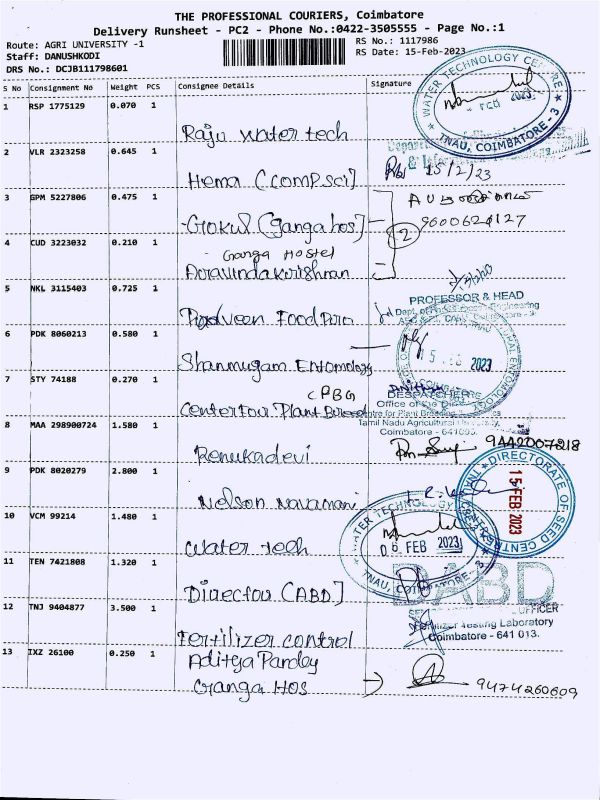 THE PROFESSIONAL COURIERS, Coimbatore
Delivery Runsheet - PC2 - Phone No.:0422-3505555 - Page No.:1
Route: AGRI UNIVERSITY -1
RS No.: 1117986
Staff: DANUSHKODI
RS Date: 15-Feb-2023
DRS No.: DCJB111798601
S No Consignment No Weight PCS Consignee Details Signature
WATER TECHNOLOGY CENTRE
2023
TNAU, COIMBATORE - 3
1 RSP 1775129 0.070 1
Raju water tech
2 VLR 2323258 0.645 1
15/2/23
Hema (comp sci)
3 GPM 5227806 0.475 1
Gokul (Ganga hos)
9600624127
2
4 CUD 3223032 0.210 1
Ganga Hostel
Aravindakrishnan
5 NKL 3115403 0.725 1
PROFESSOR & HEAD
Praveen Food Pro
6 PDK 8060213 0.580 1
15 FEB 2023
Shanmugam Entomology
7 STY 74188 0.270 1
CPBG
DESPATCHER
Office of the
Center for Plant Breed
Centre for Plant Breeding
Tamil Nadu Agricultural University,
Coimbatore - 641003.
8 MAA 298900724 1.580 1
9442007218
Renukadevi
9 PDK 8020279 2.800 1
DIRECTORATE OF SEED CENTRE
15 FEB 2023
Nelson Navamani
10 VCM 99214 1.480 1
WATER TECHNOLOGY CENTRE
06 FEB 2023
TNAU, COIMBATORE - 3
Water tech
11 TEN 7421808 1.320 1
DABD
Director (ABD)
12 TNJ 9404877 3.500 1
OFFICER
Fertilizer Testing Laboratory
Coimbatore - 641 013.
Fertilizer control
13 IXZ 26100 0.250 1
Aditya Pandey
Ganga Hos
9474260609